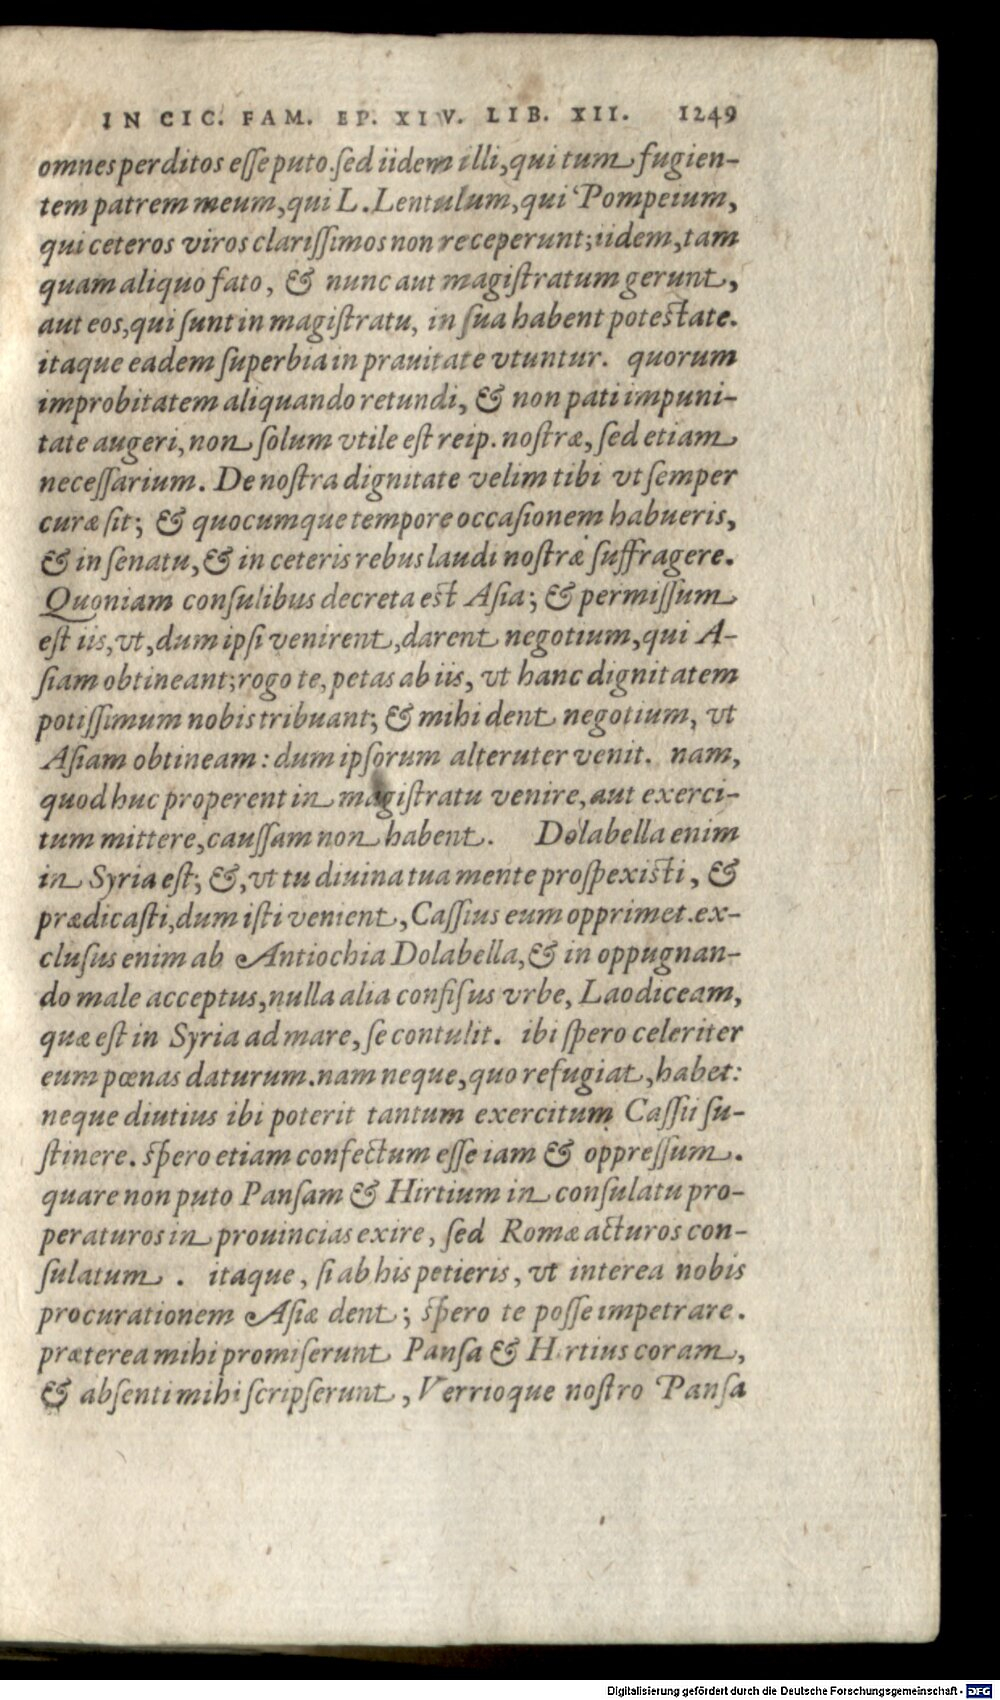 IN CIC. FAM. EP. XIV. LIB. XII. 1249
omnes perditos eſſe puto. ſed iidem illi, qui tum fugien-
tem patrem meum, qui L. Lentulum, qui Pompeium,
qui ceteros viros clariſſimos non receperunt; iidem, tam
quam aliquo fato, & nunc aut magiſtratum gerunt,
aut eos, qui ſunt in magiſtratu, in ſua habent poteſtate.
itaque eadem ſuperbia in prauitate vtuntur. quorum
improbitatem aliquando retundi, & non pati impuni-
tate augeri, non ſolum vtile eſt reip. noſtræ, ſed etiam
neceſſarium. De noſtra dignitate velim tibi vt ſemper
curæ ſit; & quocumque tempore occaſionem habueris,
& in ſenatu, & in ceteris rebus laudi noſtræ ſuffragere.
Quoniam conſulibus decreta eſt Aſia; & permiſſum
eſt iis, vt, dum ipſi venirent, darent negotium, qui A-
ſiam obtineant; rogo te, petas ab iis, vt hanc dignitatem
potiſſimum nobis tribuant; & mihi dent negotium, vt
Aſiam obtineam: dum ipſorum alteruter venit. nam,
quod huc properent in magiſtratu venire, aut exerci-
tum mittere, cauſſam non habent. Dolabella enim
in Syria eſt; &, vt tu diuina tua mente proſpexiſti, &
prædicaſti, dum iſti venient, Caſſius eum opprimet. ex-
cluſus enim ab Antiochia Dolabella, & in oppugnan-
do male acceptus, nulla alia confiſus vrbe, Laodiceam,
quæ eſt in Syria ad mare, ſe contulit. ibi ſpero celeriter
eum pœnas daturum. nam neque, quo refugiat, habet:
neque diutius ibi poterit tantum exercitum Caſſii ſu-
ſtinere. ſpero etiam confectum eſſe iam & oppreſſum.
quare non puto Panſam & Hirtium in conſulatu pro-
peraturos in prouincias exire, ſed Romæ acturos con-
ſulatum. itaque, ſi ab his petieris, vt interea nobis
procurationem Aſiæ dent; ſpero te poſſe impetrare.
præterea mihi promiſerunt Panſa & Hirtius coram,
& abſenti mihi ſcripſerunt, Verrioque noſtro Panſa
Digitalisierung gefördert durch die Deutsche Forschungsgemeinschaft - DFG